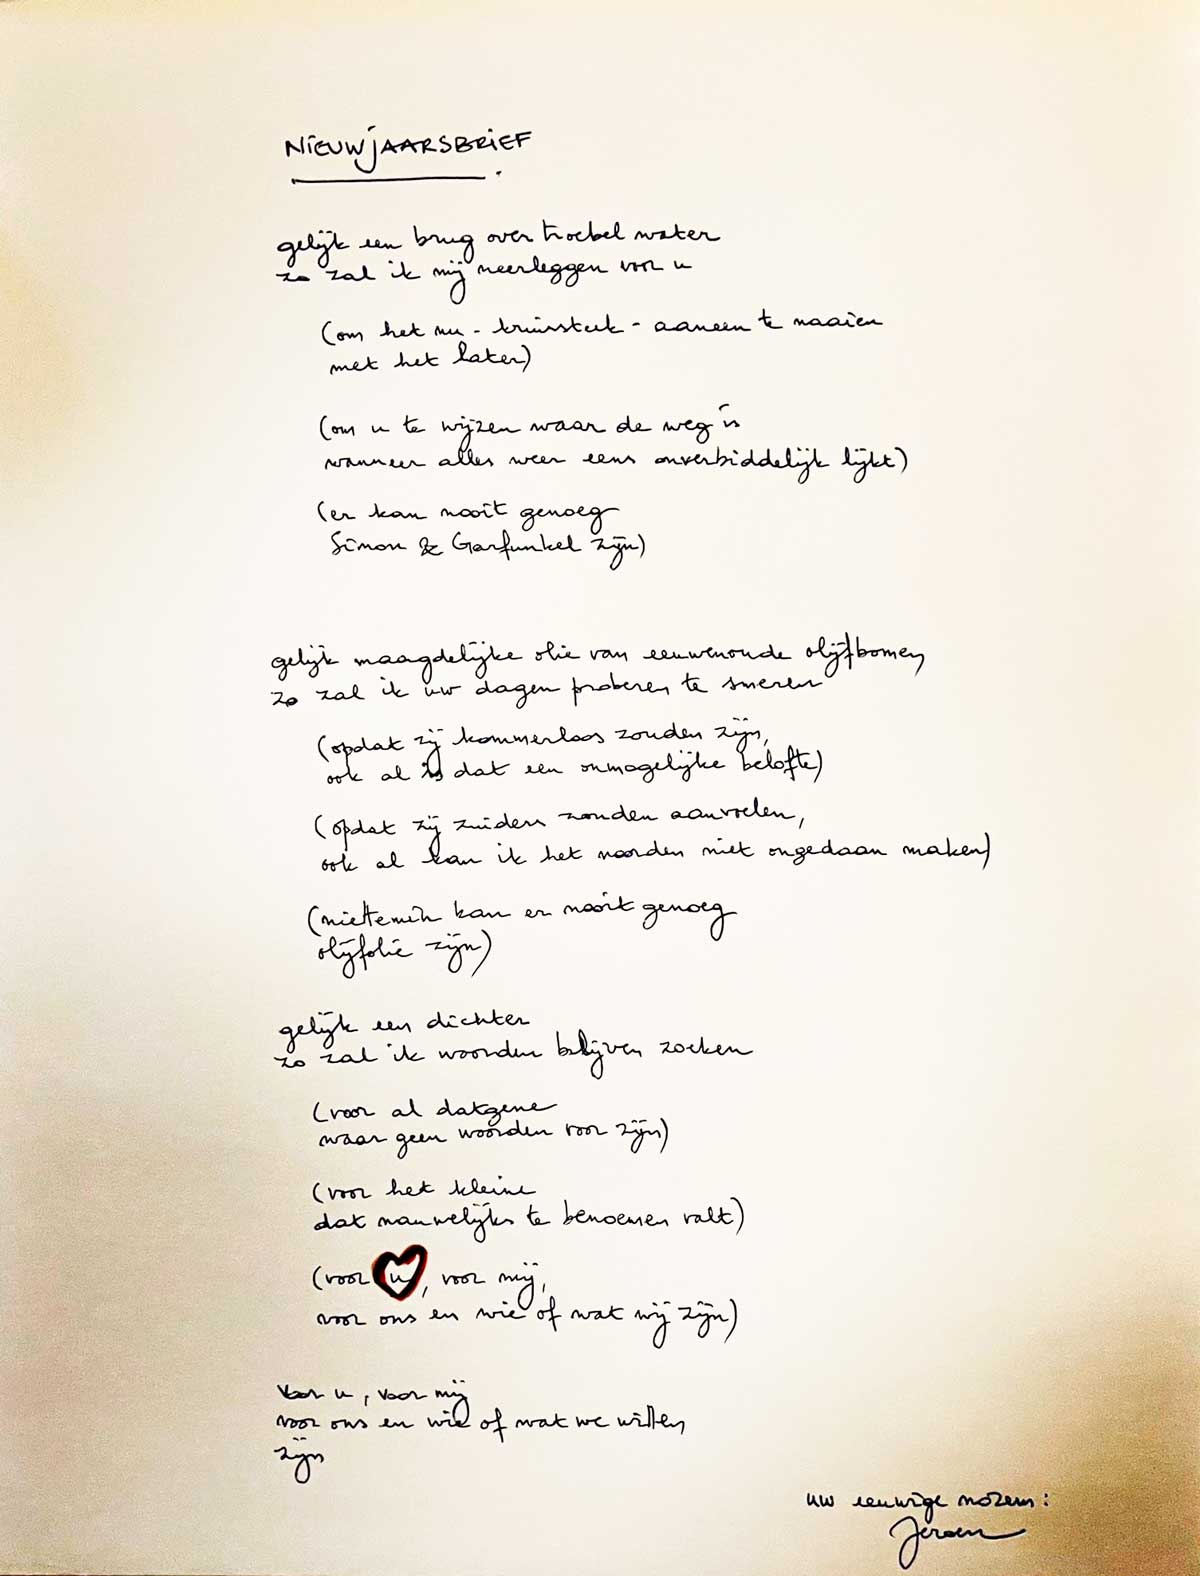 NIEUWJAARSBRIEF
gelijk een brug over troebel water
zo zal ik mij neerleggen voor u
(om het nu - kruissteek - aaneen te naaien
met het later)
(om u te wijzen waar de weg is
wanneer alles weer eens onverbiddelijk lijkt)
(er kan nooit genoeg
Simon & Garfunkel zijn)
gelijk maagdelijke olie van eeuwenoude olijfbomen
zo zal ik uw dagen proberen te smeren
(opdat zij kommerloos zouden zijn,
ook al is dat een onmogelijke belofte)
(opdat zij zuiders zouden aanvoelen,
ook al kan ik het noorden niet ongedaan maken)
(niettemin kan er nooit genoeg
olijfolie zijn)
gelijk een dichter
zo zal ik woorden blijven zoeken
(voor al datgene
waar geen woorden voor zijn)
(voor het kleine
dat nauwelijks te benoemen valt)
(voor u, voor mij,
voor ons en wie of wat wij zijn)
voor u, voor mij
voor ons en wie of wat we willen
zijn
uw eeuwige nozem:
Jeroen